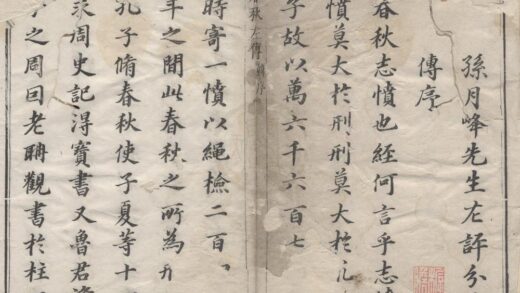 孫月峰先生左評分
傳序
春秋志憤也經何言乎志
憤莫大於刑刑莫大於
子故以萬六千六百七
秋左傳 序
時寄一憤以繩檢二百
年之間此春秋之所為
孔子脩春秋使子夏等十
求周史記得寶書又魯君
之周回老聃觀書於柱